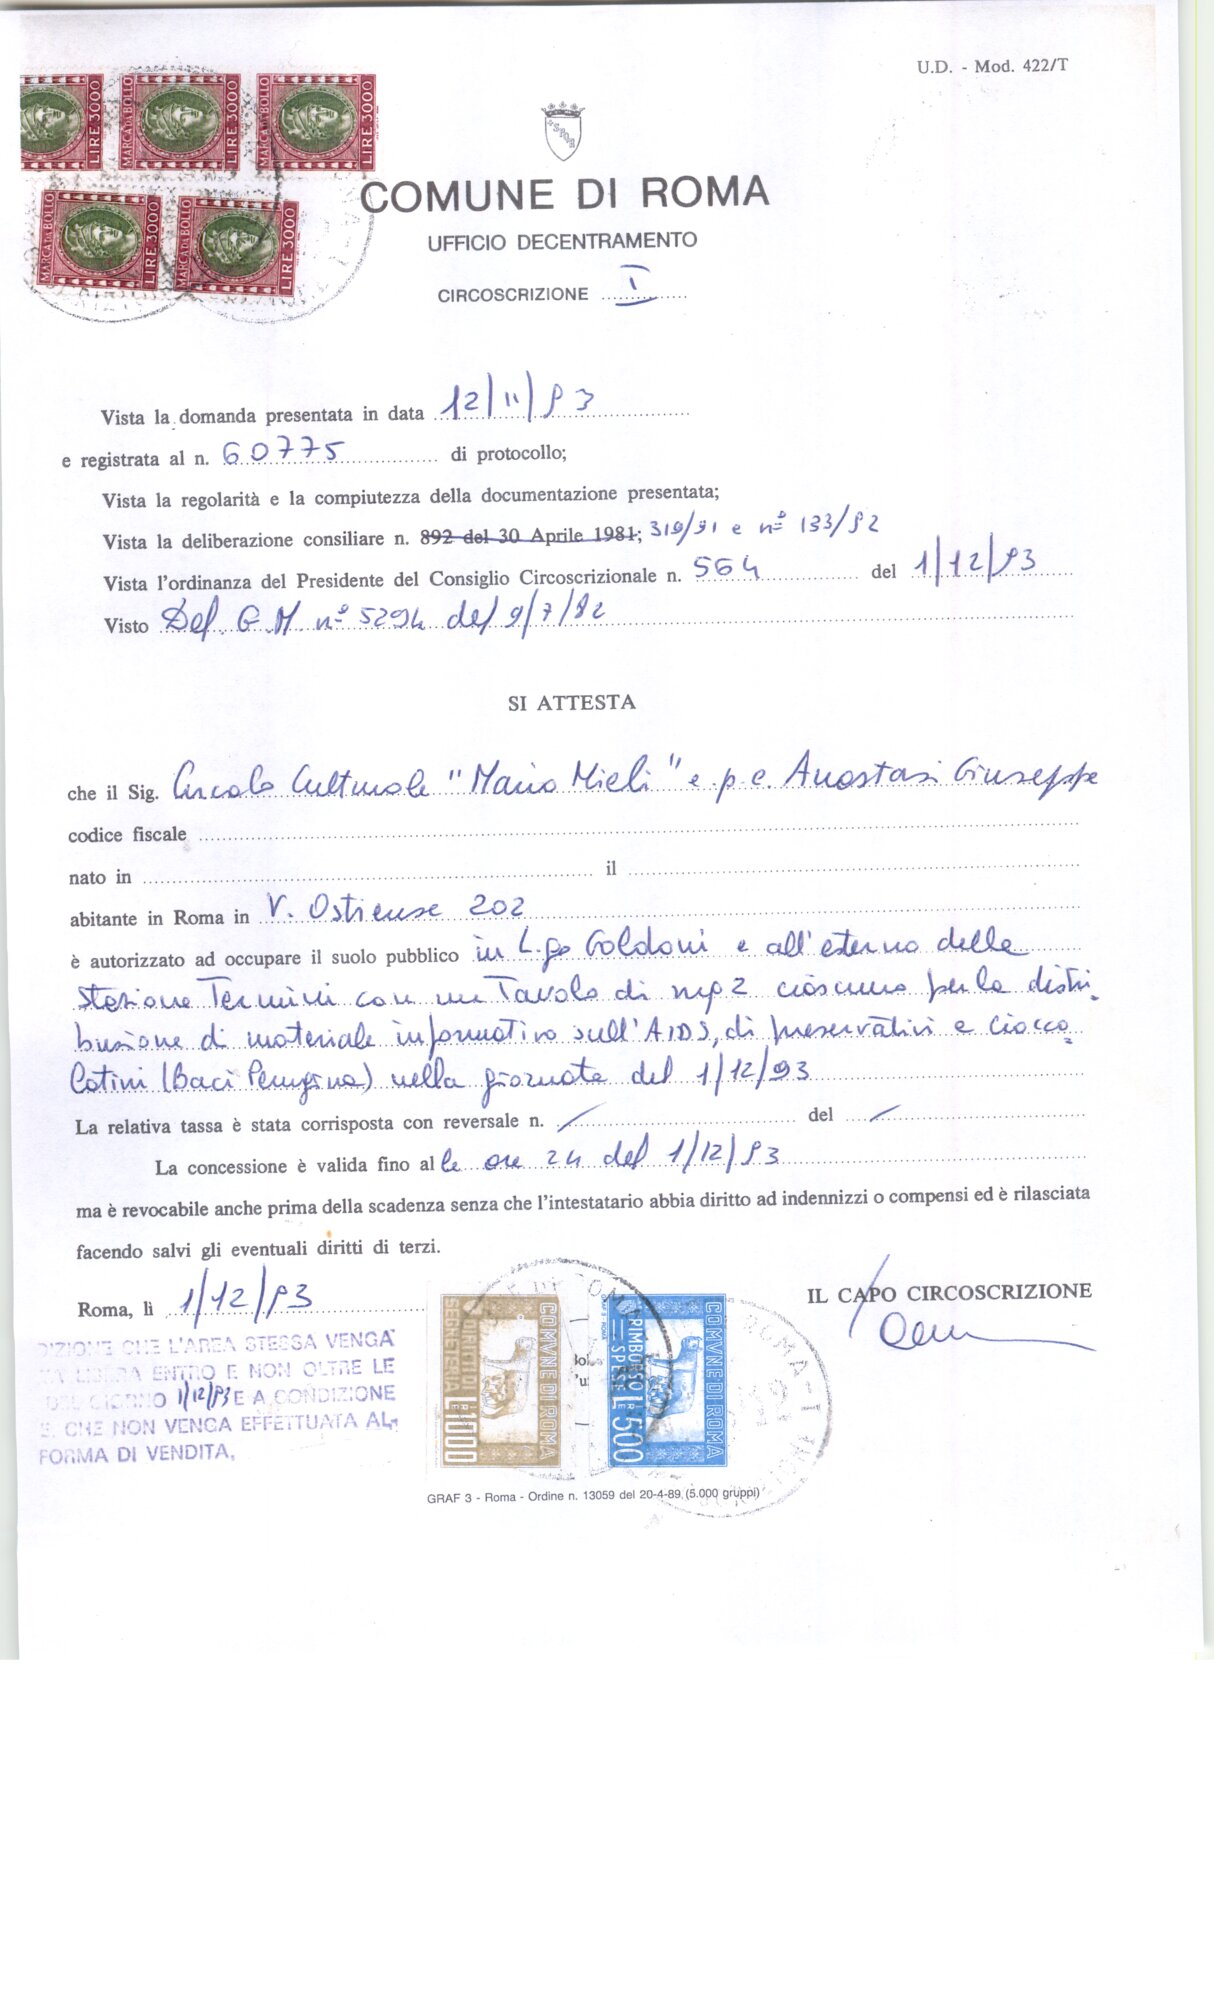 U.D. - Mod. 422/T
MARCA DA BOLLO LIRE 3000
MARCA DA BOLLO LIRE 3000
LIRE 3000
MARCA DA BOLLO LIRE 3000
MARCA DA BOLLO LIRE 3000
COMUNE DI ROMA
UFFICIO DECENTRAMENTO
CIRCOSCRIZIONE I
Vista la domanda presentata in data 12/11/93
e registrata al n. 60775 di protocollo;
Vista la regolarità e la compiutezza della documentazione presentata;
Vista la deliberazione consiliare n. 892 del 30 Aprile 1981; 319/91 e n° 133/92
Vista l'ordinanza del Presidente del Consiglio Circoscrizionale n. 564 del 1/12/93
Visto Del. G.M. n° 5294 del 9/7/82
SI ATTESTA
che il Sig. Circolo Culturale "Mario Mieli" e p.e. Anastasi Giuseppe
codice fiscale
nato in il
abitante in Roma in V. Ostiense 202
è autorizzato ad occupare il suolo pubblico in L.go Goldoni e all'esterno della
stazione Termini con un Tavolo di mq 2 ciascuno per la distri-
buzione di materiale informativo sull'AIDS, di preservativi e ciocco=
latini (Baci Perugina) nella giornata del 1/12/93
La relativa tassa è stata corrisposta con reversale n. / del /
La concessione è valida fino al le ore 24 del 1/12/93
ma è revocabile anche prima della scadenza senza che l'intestatario abbia diritto ad indennizzi o compensi ed è rilasciata
facendo salvi gli eventuali diritti di terzi.
Roma, lì 1/12/93
IL CAPO CIRCOSCRIZIONE
DIZIONE CHE L'AREA STESSA VENGA
ENTRO E NON OLTRE LE
DEL GIORNO 1/12/93 E A CONDIZIONE
E CHE NON VENGA EFFETTUATA AL-
FORMA DI VENDITA.
COMVNE DI ROMA DIRITTI DI SEGRETERIA L. 1000
COMVNE DI ROMA RIMBORSO SPESE L. 500
GRAF 3 - Roma - Ordine n. 13059 del 20-4-89 (5.000 gruppi)